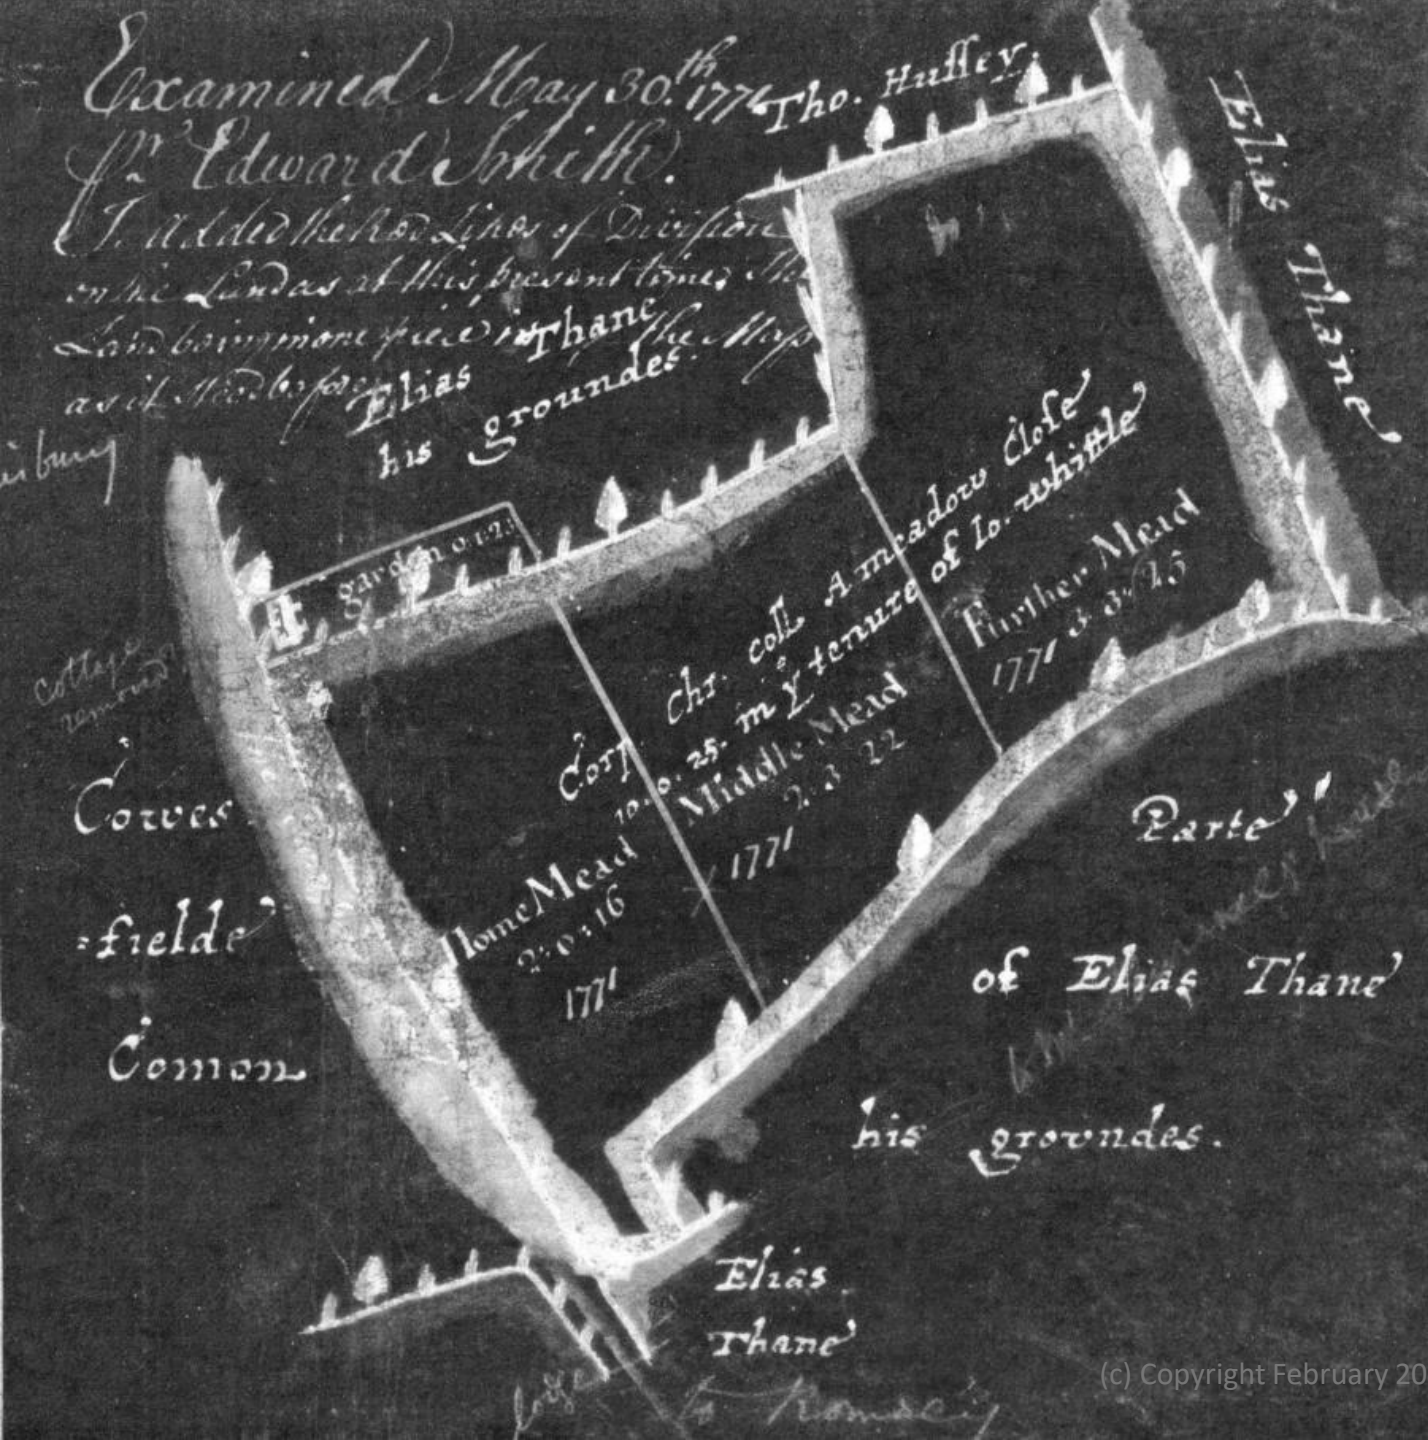 Examined May 30.th 1771
pr Edward Smith.
I added the Red Lines of Division
on the Land as at this present time, The
Land being in one piece in the Map
as it stood before
Tho. Hussey.
Elias Thane
Elias Thane
his groundes.
garden 0:1:23
cottage
removed
Corves
=fielde
Comon
Corp. Chr. coll. A meadow Close
10. 0. 25. in ye tenure of Io. whittle
Further Mead
1771 3. 3. 25
Middle Mead
2. 3. 22
1771
Home Mead
2: 0: 16
1771
Parte
of Elias Thane
his groundes.
Elias
Thane
to Romsey
(c) Copyright February 20